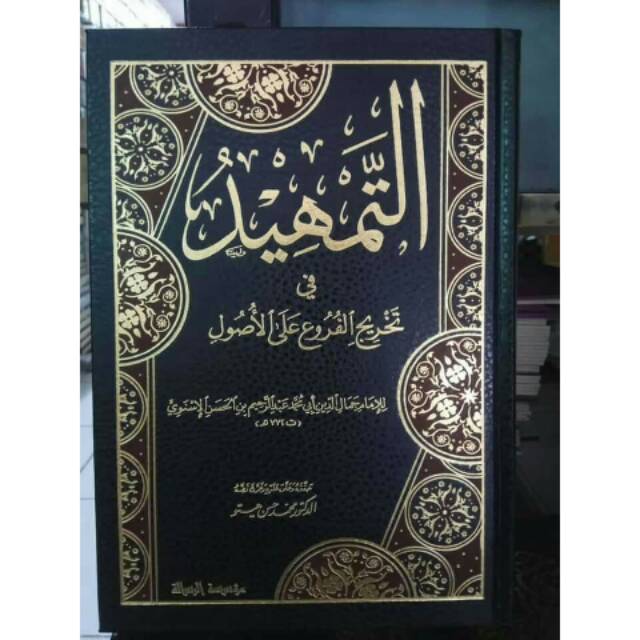 التَّمْهِيْدُ
في
تَخْرِيْجِ الفُرُوْعِ عَلَى الأُصُوْلِ
للإمام جمال الدين أبي محمد عبد الرحيم بن الحسن الإسنوي
(ت ٧٧٢ هـ)
حققه وعلق عليه وخرج نصه
الدكتور محمد حسن هيتو
مؤسسة الرسالة